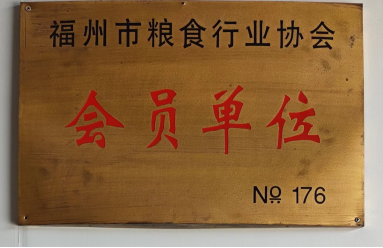 福州市粮食行业协会
会员单位
№ 176